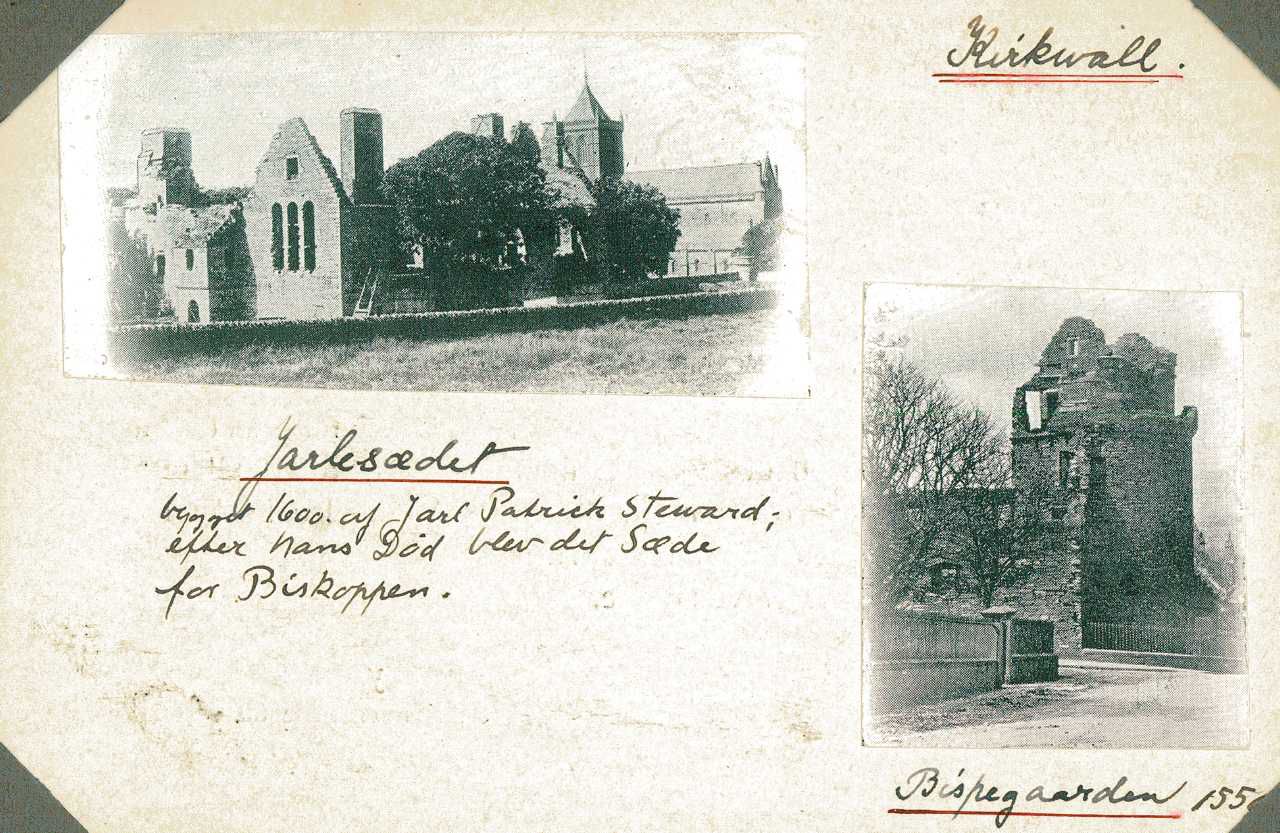 Kirkwall.
Jarlesædet
bygget 1600. af Jarl Patrick Steward;
efter hans Død blev det Sæde
for Biskoppen.
Bispegaarden 155